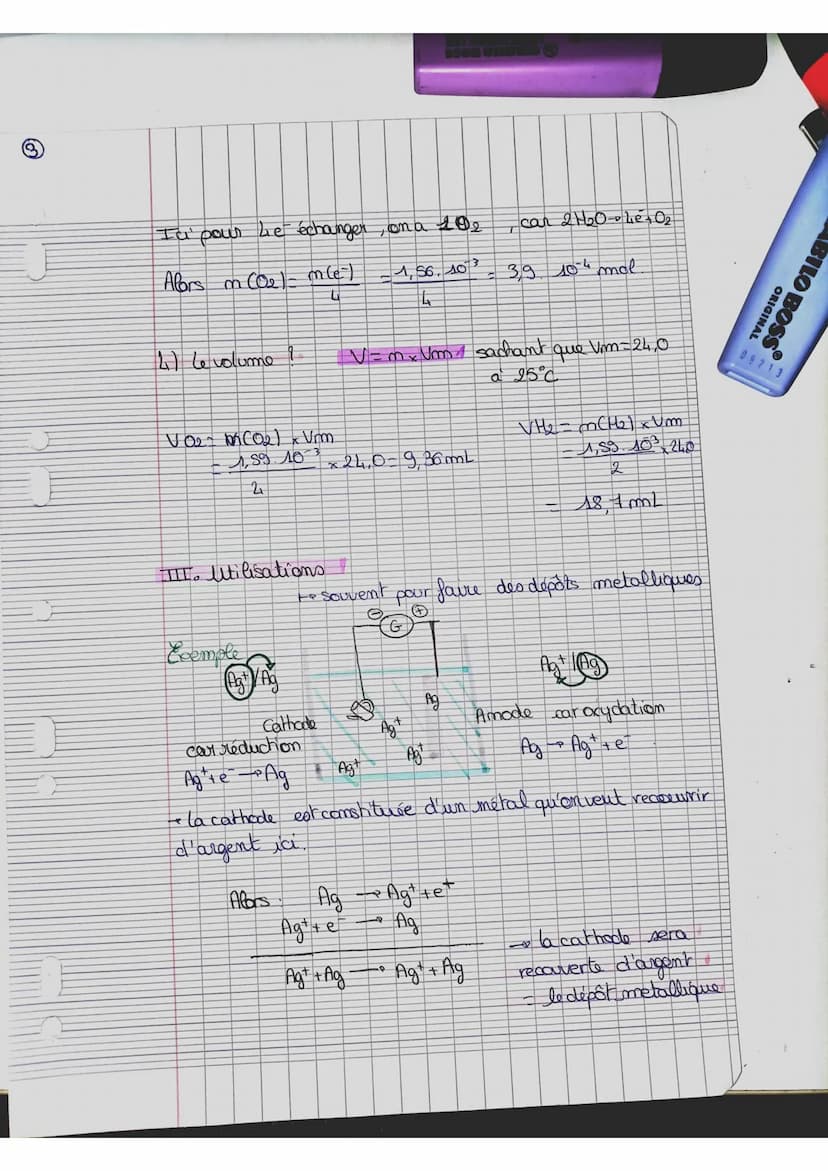 3
Ici pour 4e⁻ échanger, on a 1O₂, car 2H₂O → 4e⁻ + O₂
Alors n(O₂) = n(e⁻)/4 = 1,56.10⁻³/4 = 3,9 10⁻⁴ mol.
4) Le volume ! V = n × Vm sachant que Vm = 24,0
à 25°C
VO₂ = n(O₂) × Vm
= 1,59.10⁻³/4 × 24,0 = 9,36 mL
VH₂ = n(H₂) × Vm
= 1,59.10⁻³/2 × 240
= 18,7 mL
III. Utilisations
→ souvent pour faire des dépôts metalliques
⊖ G ⊕
Exemple
Ag⁺/Ag
Ag⁺/Ag
Cathode
car réduction
Ag⁺ + e⁻ → Ag
Ag
Ag⁺
Ag⁺
Ag⁺
Anode car oxydation
Ag → Ag⁺ + e⁻
→ la cathode est constituée d'un métal qu'on veut recouvrir
d'argent ici.
Alors : Ag → Ag⁺ + e⁺
Ag⁺ + e⁻ → Ag
Ag⁺ + Ag → Ag⁺ + Ag
→ la cathode sera
recouverte d'argent
= le dépôt metallique
ABILO BOSS®
ORIGINAL